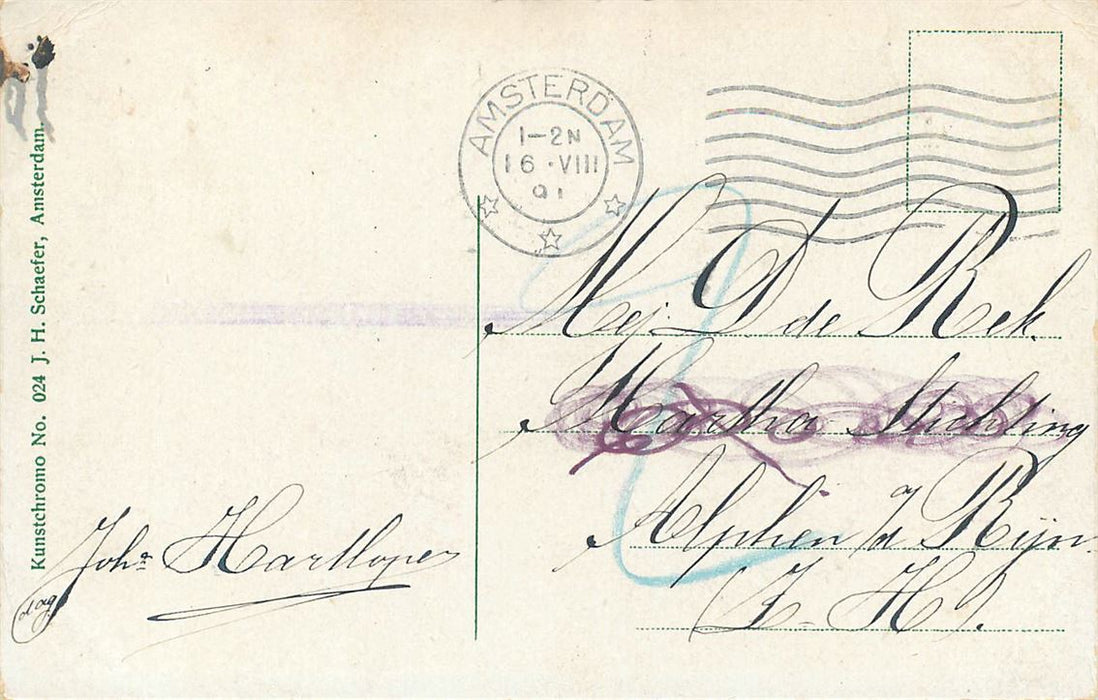 Kunstchromo No. 024 J. H. Schaefer, Amsterdam.
AMSTERDAM
1-2N
16·VIII
Mej. D de Rek
Martha Stichting
Alphen a/d Rijn
(Z-H).
Joh.ˢ Hartloper
dag